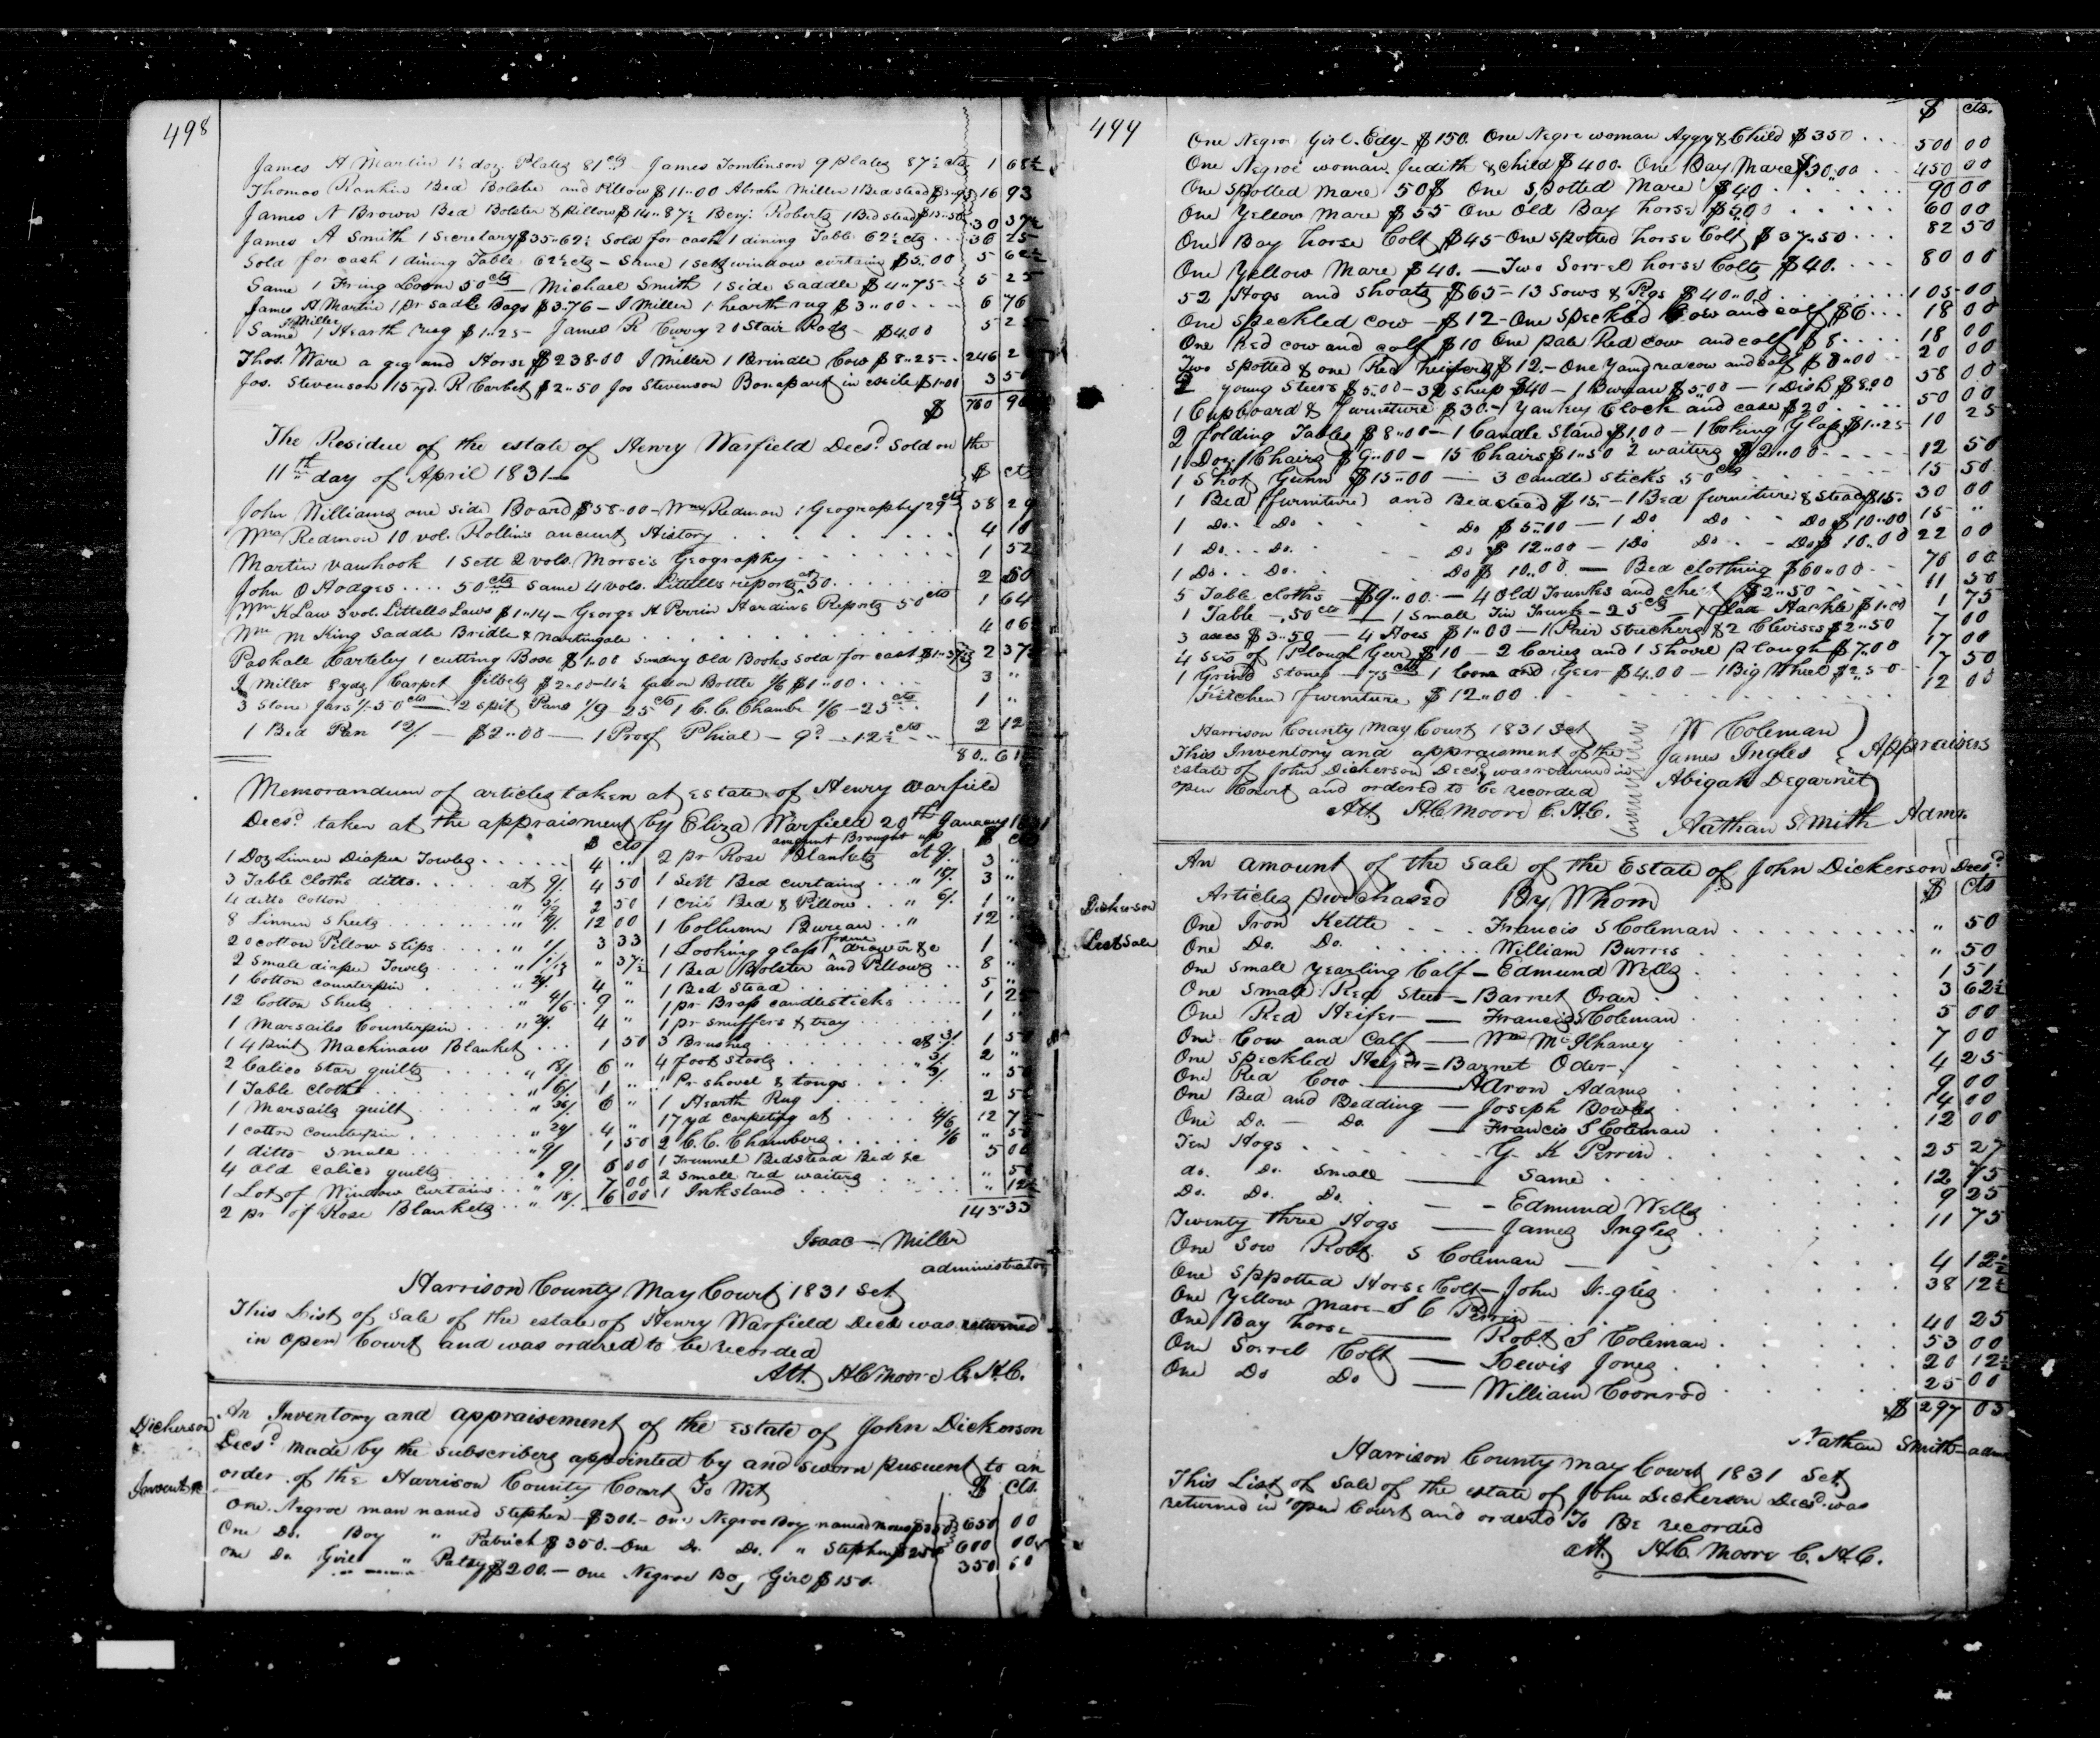 498
James A Martin 1½ doz. Plates 81 cts James Tomlinson 9 plates 87½ cts 1 68½
Thomas Rankin Bed Bolster and Pillow $11"00 Abrahm Miller 1 Bedstead $5"93 16 93
James N Brown Bed Bolster & Pillow $14"87½ Benj. Roberts 1 Bedstead $15"50 30 37½
James A Smith 1 Secretary $35"62½ Sold for cash 1 dining Table 62½ cts 36 25
Sold for cash 1 dining Table 62½ cts - Same 1 sett window curtains $5"00 5 62½
Same 1 Fring Loom 50 cts Michael Smith 1 side saddle $4"75 5 25
James A Martin 1 pr sadle Bags $3.76 - I Miller 1 hearth rug $3"00 6 76
Same I Miller 1 Hearth rug $1"25 - James R Curry 20 Stair Rods - $4.00 5 25
Thos. Ware a gig and Horse $238.00 I Miller 1 Brindle Cow $8"25 246 2
Jos. Stevenson 15 yd. R Carbet $2"50 Jos Stevenson Bonapart in exile $1"00 3 50
$ 760 90
The Residue of the estate of Henry Warfield Decsd Sold on the
11th day of April 1831 $ cts
John Williams one side Board $58"00 - Wm Redmon 1 Geography 29 cts 58 29
Wm Redmon 10 vol. Rollins ancient History 4 10
Martin Vanhook 1 Sett 2 vols. Morse's Geography 1 52
John O Hodges .... 50 cts Same 4 vols. Littells reports at 50 2 50
Wm K Law 3 vol. Littells Laws $1"14 - George H Perrin Hardins Reports 50 cts 1 64
Wm M King Saddle Bridle & Martingale 4 06
Paskall Carteley 1 cutting Box $1.00 Sundry Old Books sold for cash $1"37½ 2 37½
I Miller 8 yds Carpet $2"00 - Gallon Bottle 1/6 $1"00 3 "
3 Stone Jars 1/ - 50 cts 2 spit Pans 1/9 - 25 cts 1 C.C. Chambr 1/6 - 25 cts 1 "
1 Bed Pan 12/. - $2"00 - 1 Proof Phial - 9d - 12½ cts 2 12
80.. 61
Memorandum of articles taken at estate of Henry Warfield
Decsd taken at the appraisment by Eliza Warfield 20th January 1831
$ cts amount Brought up $ cts
1 Doz Linnen Diaper Towles 4 " 2 pr Rose Blankets at 9/. 3 "
3 Table Cloths ditto. at 9/. 4 50 1 Sett Bed curtains " 18/. 3 "
4 ditto Cotton " 3/9 2 50 1 Crib Bed & Pillow " 6/. 1 "
8 Linnen Sheets " 9/. 12 00 1 Collumn Bureau " 12 "
20 cotton Pillow slips " 1/. 3 33 1 Looking glass frame drawer &c 1 "
2 Small diaper Towels " 1/1½ " 37½ 1 Bed Bolster and Pillows 8 "
1 Cotton Counterpin " 24/. 4 " 1 Bed Stead 5 "
12 Cotton Sheets " 4/6 9 " 1 pr Brass candlesticks 1 25
1 Marsailes Counterpin " 24/. 4 " 1 pr snuffers & tray 1 "
1 4 point Mackinaw Blanket 1 50 3 Brushes at 3/. 1 50
2 Calico Star quilts " 18/. 6 " 4 foot Stools " 3/. 2 "
1 Table Cloth " 6/. 1 " 1 Pr shovel & tongs 3/. " 50
1 Marsails quilt " 36/. 6 " 1 Hearth Rug 2 50
1 cotton Counterpin " 24/. 4 " 17 yd carpeting at 4/6 12 75
1 ditto Small " 9/. 1 50 2 C.C. Chambers 1/6 " 50
4 old calico quilts " 9/. 6 00 1 Trunnel Bedstead Bed &c 5 00
1 Lot of Window Curtains " 7 00 2 small red waiters " 50
2 pr of Rose Blankets " 18/. 6 00 1 Inkstand " 12½
143"33
Isaac Miller
administrator
Harrison County May Court 1831 Sct
This List of Sale of the estate of Henry Warfield Decd was returned
in open Court and was ordered to be recorded
Att. HC Moore C.H.C.
Dickerson
Invent
An Inventory and appraisement of the Estate of John Dickerson
Decsd made by the subscribers appointed by and sworn pusuent to an
order of the Harrison County Court To Wit $ cts.
One Negroe man named Stephen - $300. - One Negroe Boy named Moses $350 650 00
One Do. Boy " Patrick $350. - One Do. Do. " Stephen $250 600 00
One Do. Girl " Patsy $200. - One Negroe Boy Girl $150. 350 00
499
$ cts.
One Negroe Girl Edy $150. One Negro woman Aggy & Child $350 500 00
One Negroe woman Judith & child $400. One Bay Mare $30.00 450 00
One Spotted Mare 50$ One Spotted Mare $40 90 00
One Yellow Mare $55 One Old Bay horse $5.00 60 00
One Bay horse Colt $45 - One spotted horse Colt $37.50 82 50
One Yellow Mare $40. - Two Sorrel horse Colts $40. 80 00
52 Hogs and Shoats $65 - 13 Sows & Pigs $40"00 105 00
One Speckled Cow - $12 - One Speckled Cow and calf $6 18 00
One Red cow and calf $10 One pale Red Cow and calf $8 18 00
Two spotted & one Red heifers $12. - One Young rea cow and calf $8"00 20 00
2 Young Steers $5"00 - 32 sheep $40 - 1 Bureau $5"00 - 1 Disk $8"00 58 00
1 Cupboard & furniture $30. - 1 Yankey Clock and case $20 50 00
2 folding Tables $8"00 - 1 Candle Stand $1.00 - 1 Looking Glass $1"25 10 25
1 Doz. Chairs $9"00 - 15 Chairs $1"50 2 waiters $2"00 12 50
1 Shot Gunn $15"00 - 3 candle sticks 50 cts 15 50
1 Bed (furniture) and Bedstead $15 - 1 Bed furniture & stead $15 30 00
1 Do. Do. Do $5"00 - 1 Do Do Do $10"00 15 "
1 Do. Do. Do $12"00 - 1 Do Do Do $10"00 22 00
1 Do. Do. Do $10"00. - Bed clothing $60"00 70 00
5 Table cloths $9"00 - 4 Old Trunks and chest $2"50 11 50
1 Table - 50 cts 1 Small Tin Trunk - 25 cts - 1 Flax Hackle $1"00 1 75
3 axes $3"50 - 4 Hoes $1"00 - 1 Pair Stretchers & 2 Clevises $2"50 7 00
4 Sets of Plough Gear $10 - 2 Caries and 1 Shovel Plough $7.00 17 00
1 Grind Stone - 75 cts 1 loom and Geer $4.00 - 1 Big Wheel $2"50 7 50
Kitchen furniture $12"00 12 00
Harrison County May Court 1831 Sct
This Inventory and appraisment of the
estate of John Dickerson Decsd was returned in
open Court and ordered to be recorded
Att HC Moore C.H.C.
W Coleman
James Ingles Appraisers
Abigah Degarnet
Nathan Smith Admr.
Dickerson
List Sale
An amount of the Sale of the Estate of John Dickerson Decsd
Articles purchased By Whom $ cts
One Iron Kettle Francis S Coleman " 50
One Do. Do. William Burres " 50
One Small Yearling Calf - Edmund Wells 1 51
One Small Red Steer - Barnet Oder 3 62½
One Red Heifer - Francis S Coleman 5 00
One Cow and Calf - Wm McIlhaney 7 00
One Speckled Heifr - Barnet Oder 4 25
One Red Cow - Aaron Adams 9 00
One Bed and Bedding - Joseph Bowles 14 00
One Do. - Do. - Francis S Coleman 12 00
Ten Hogs G. K Perrin 25 27
do. Do. Small - Same 12 75
Do. Do. Do. - Edmund Wells 9 25
Twenty three Hogs - James Ingles 11 75
One Sow Robt. S Coleman - 4 12½
One Sppotted Horse Colt - John Ingles 38 12½
One Yellow Mare - S C Perrin 40 25
One Bay horse - Robt S Coleman 53 00
One Sorrel Colt - Lewis Jones 20 12½
One Do Do - William Coonrod 25 00
$ 297 03
Nathan Smith admr
Harrison County May Court 1831 Sct.
This List of Sale of the estate of John Dickerson Decsd was
returned in open Court and ordered To Be recorded
Att. H.C. Moore C.H.C.